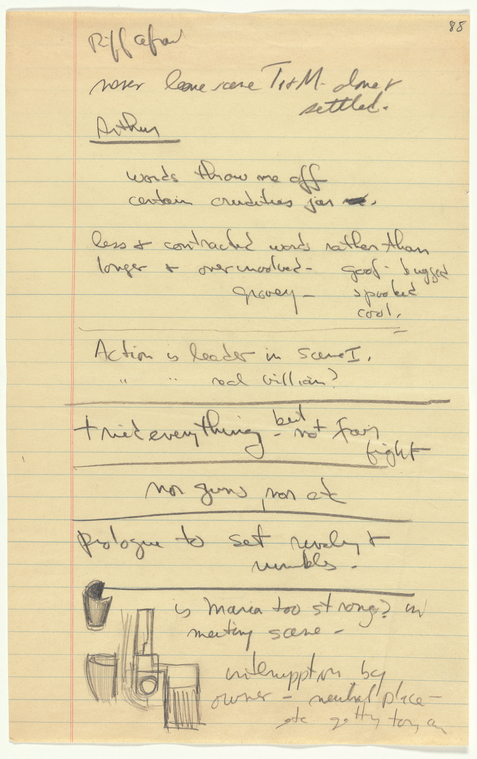 88
Riff afraid
never leave scene T+M. done +
settled.
Arthur
words throw me off
certain crudities jar
less + contracted words rather than
longer + overinvolved - goof - bugged
groovey - spooked
cool.
Action is leader in scene I.
" " real villian?
tried everything but not fair
fight
nor guns, nor etc
prologue to set rivalry +
rumbles.
is Maria too strong? in
meeting scene -
interruption by
owner - neutral place -
etc